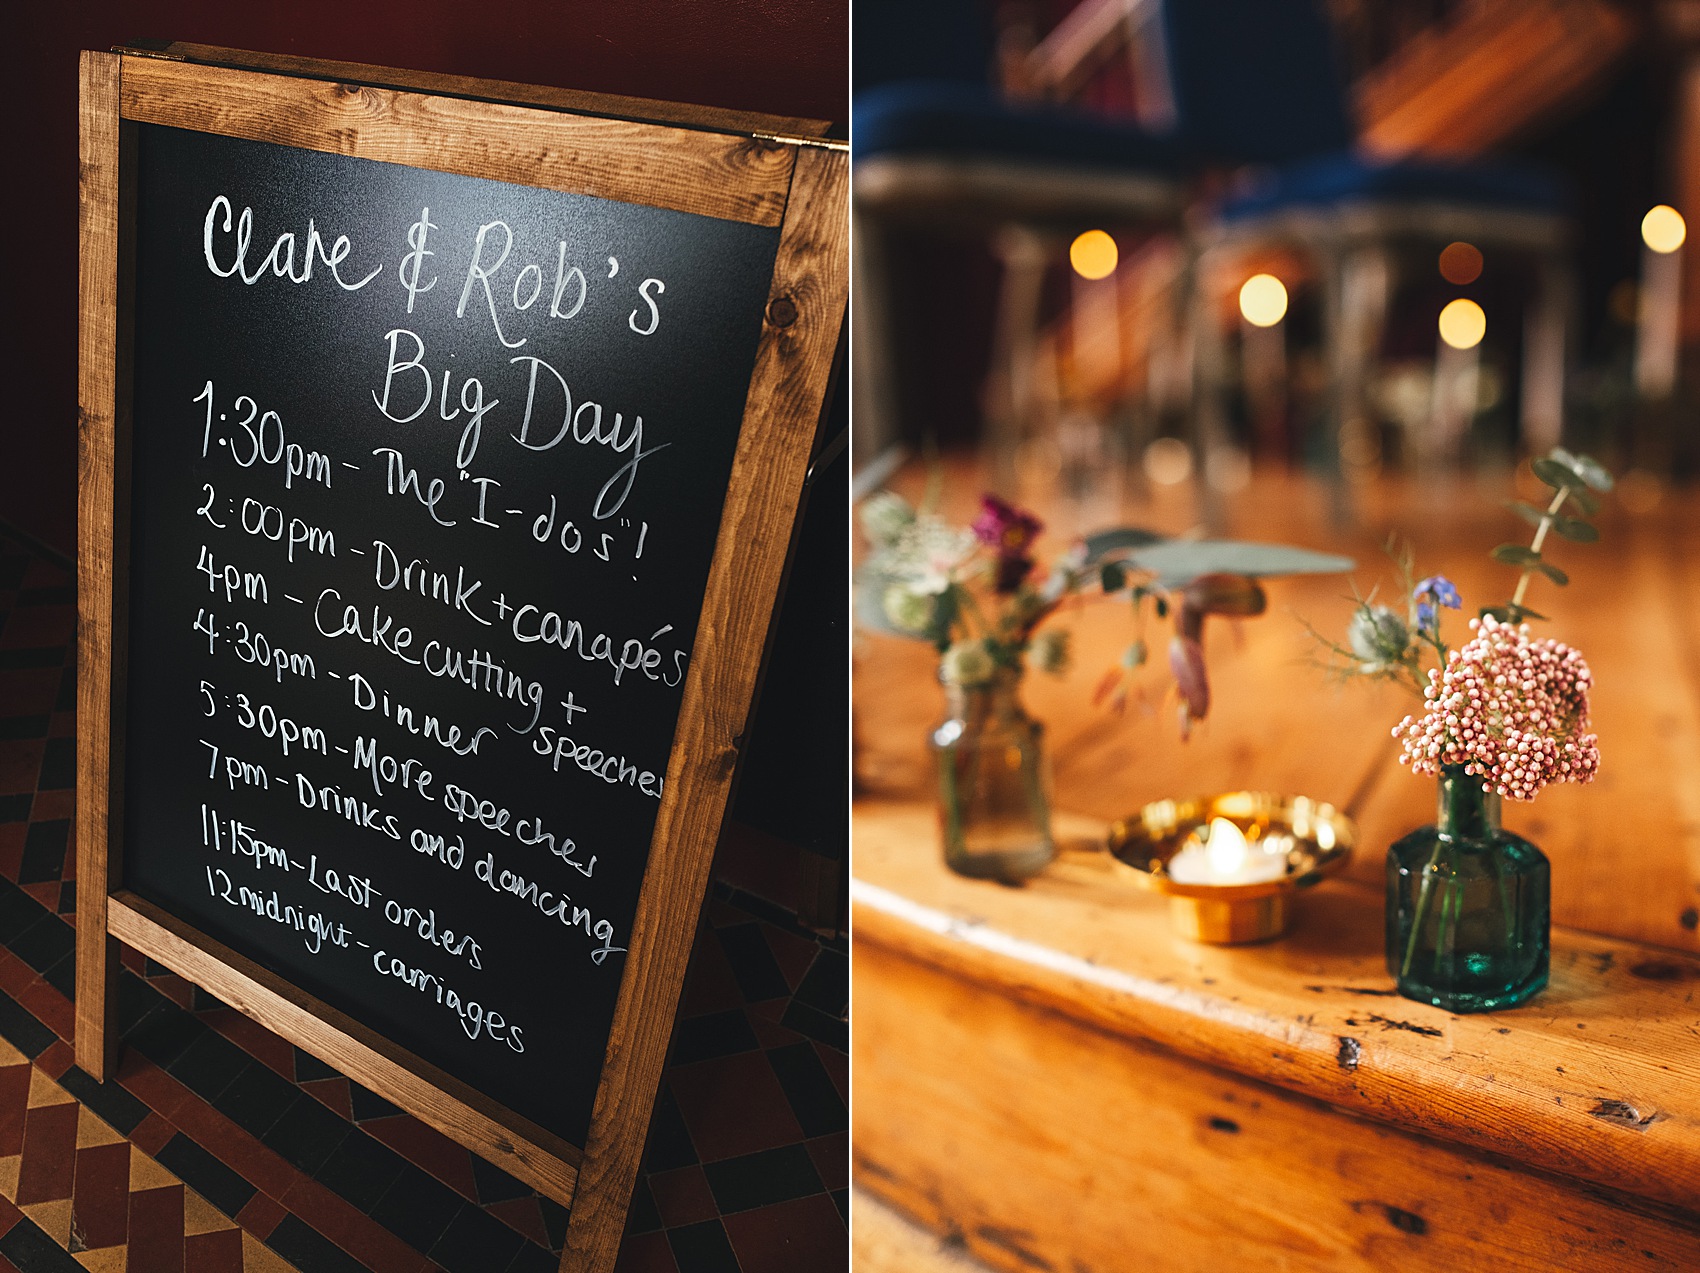 Clare & Rob's
Big Day
1:30pm - The "I-dos"!
2:00pm - Drink + canapés
4pm - Cake cutting +
speeches
4:30pm - Dinner
5:30pm - More speeches
7pm - Drinks and dancing
11:15pm - Last orders
12 midnight - carriages